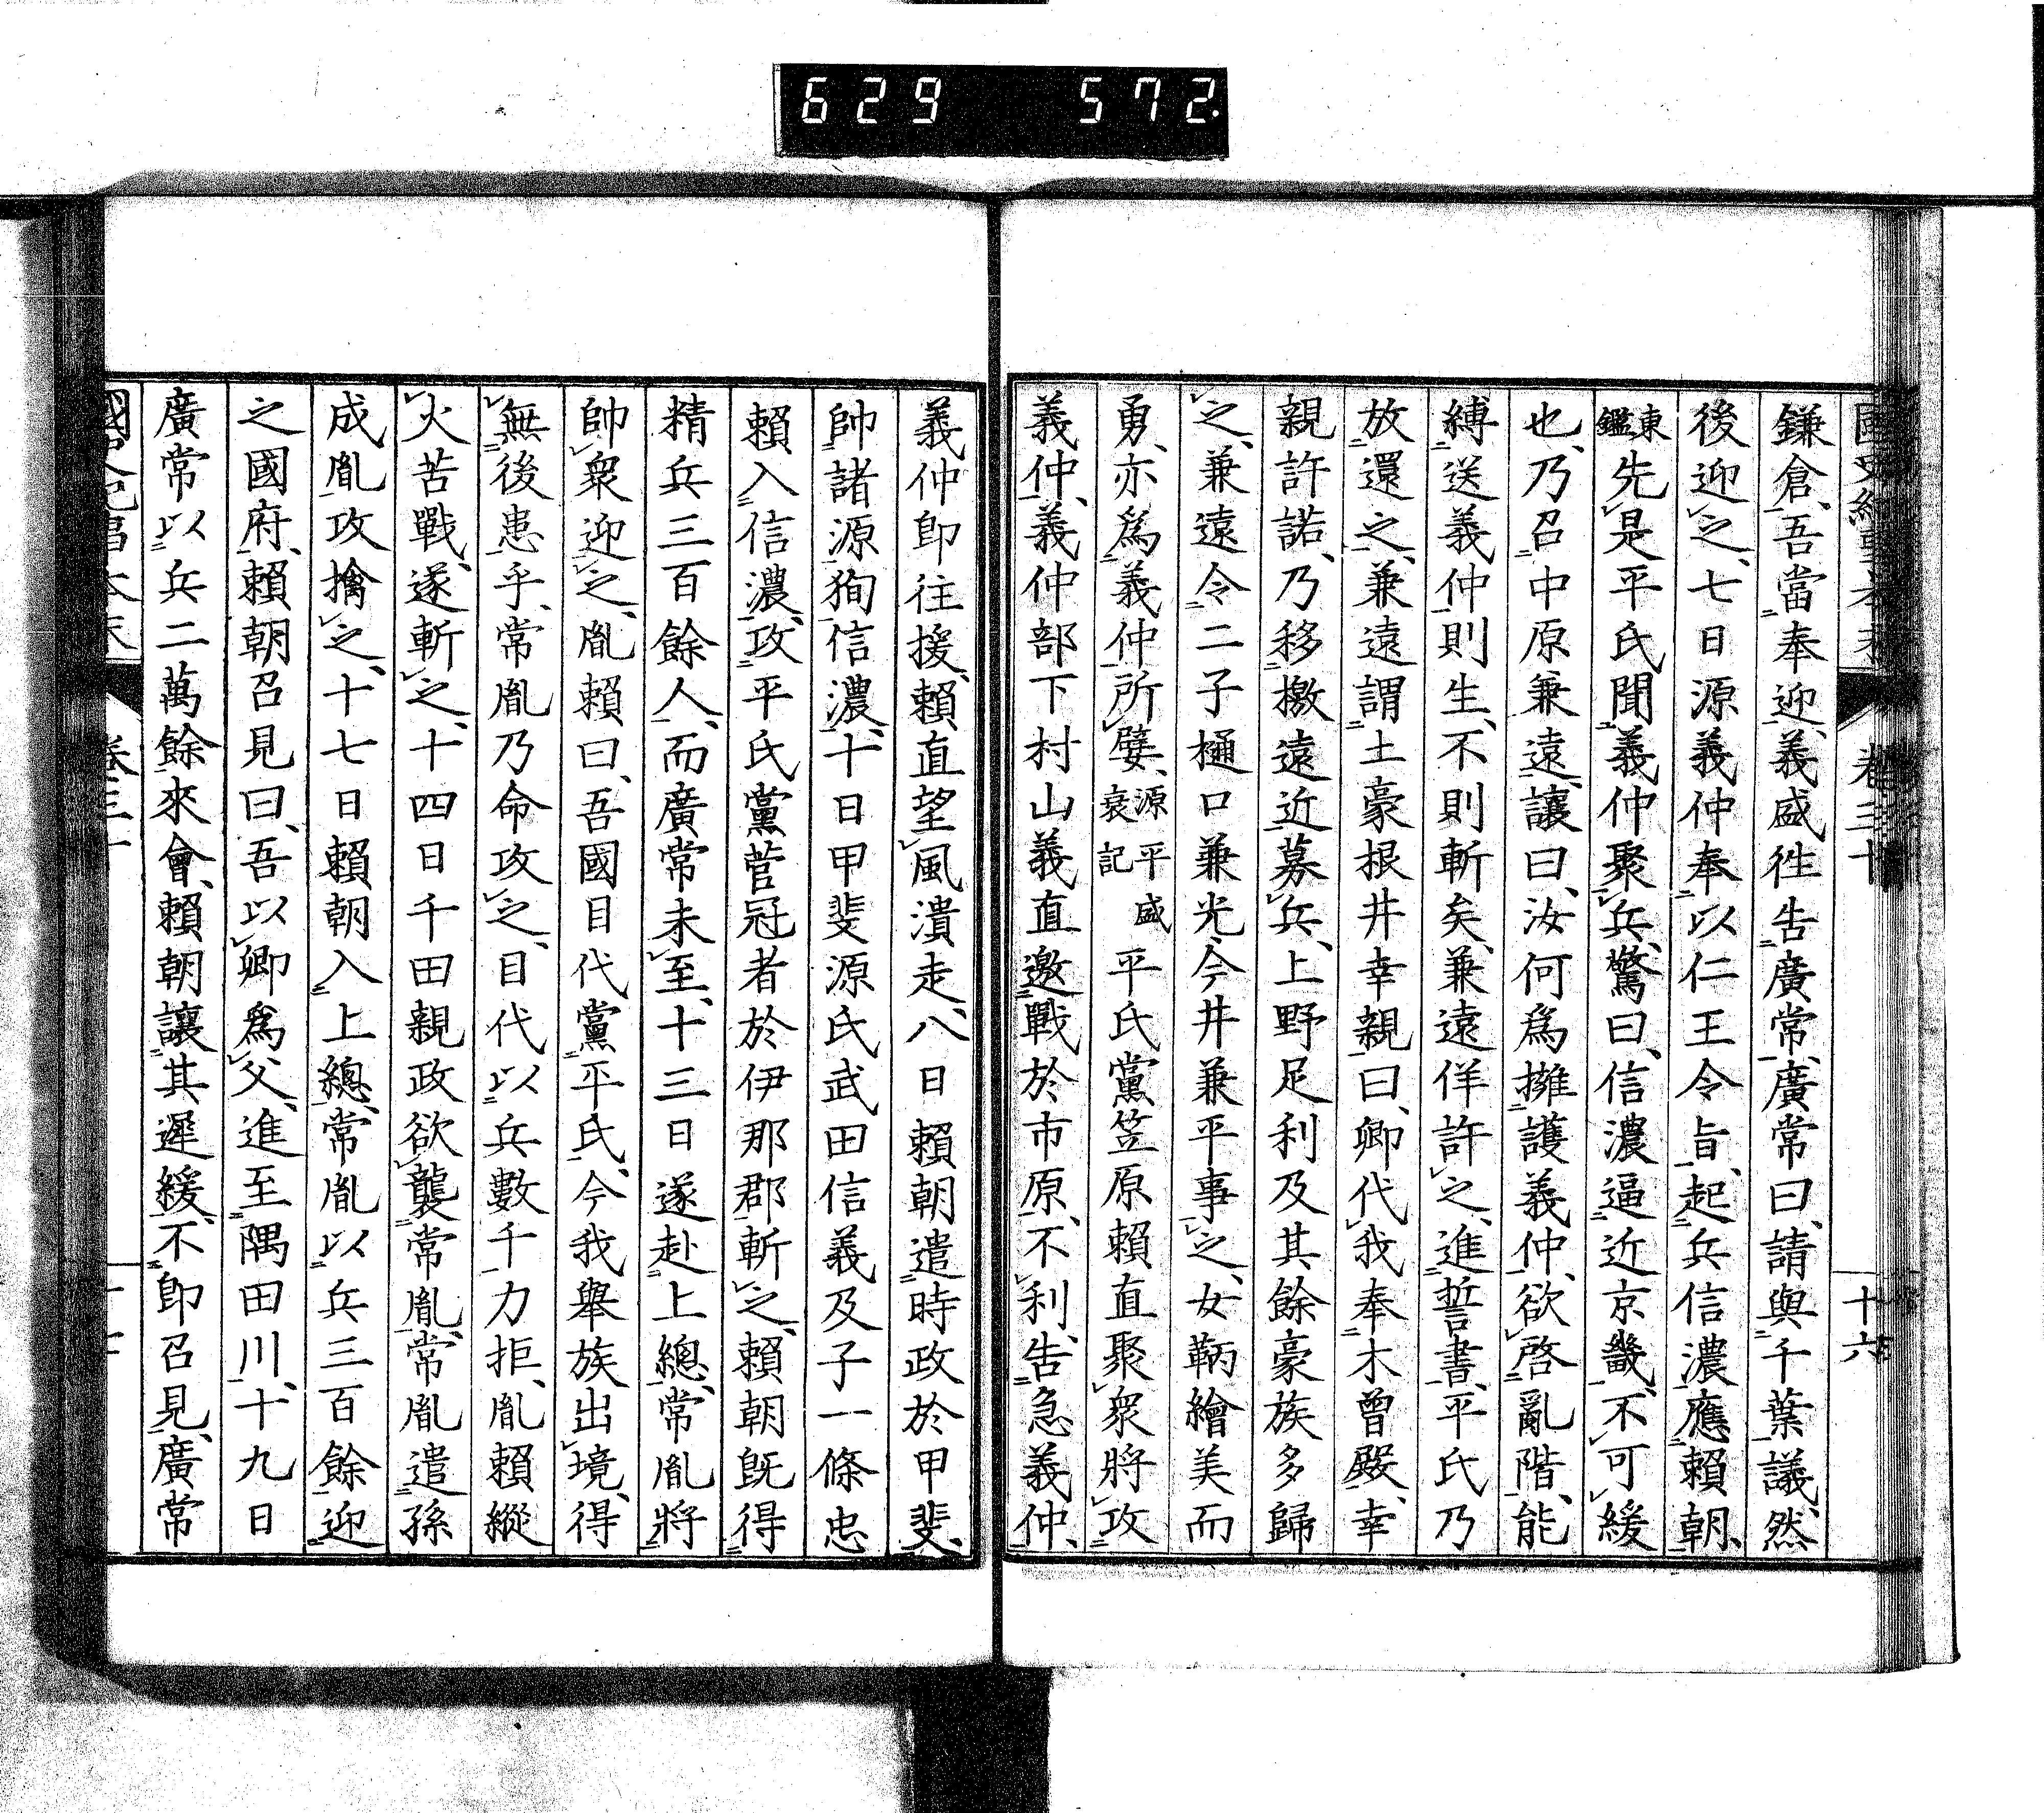 629 572.
國史紀事本末 卷三十 十六
鎌倉、吾當奉迎、義盛徃告廣常、廣常曰、請與千葉議、然
後迎之、七日源義仲奉以仁王令旨、起兵信濃、應賴朝、
東鑑 先是平氏聞義仲聚兵、驚曰、信濃逼近京畿、不可緩
也、乃召中原兼遠、讓曰、汝何爲擁護義仲、欲啓亂階、能
縛送義仲則生、不則斬矣、兼遠佯許之、進誓書、平氏乃
放還之、兼遠謂土豪根井幸親曰、卿代我奉木曾殿、幸
親許諾、乃移檄遠近募兵、上野足利及其餘豪族多歸
之、兼遠令二子樋口兼光今井兼平事之、女鞆繪美而
勇、亦爲義仲所嬖、源平盛衰記 平氏黨笠原賴直聚衆將攻
義仲、義仲部下村山義直邀戰於市原、不利、告急義仲、
義仲卽往援、賴直望風潰走、八日賴朝遣時政於甲斐、
帥諸源狥信濃、十日甲斐源氏武田信義及子一條忠
賴入信濃、攻平氏黨菅冠者於伊那郡斬之、賴朝旣得
精兵三百餘人、而廣常未至、十三日遂赴上總、常胤將
帥衆迎之、胤賴曰、吾國目代黨平氏、今我舉族出境、得
無後患乎、常胤乃命攻之、目代以兵數千力拒、胤賴縱
火苦戰、遂斬之、十四日千田親政欲襲常胤、常胤遣孫
成胤攻擒之、十七日賴朝入上總、常胤以兵三百餘迎
之國府、賴朝召見曰、吾以卿爲父、進至隅田川、十九日
廣常以兵二萬餘來會、賴朝讓其遲緩、不卽召見、廣常
國史紀事本末 卷三十